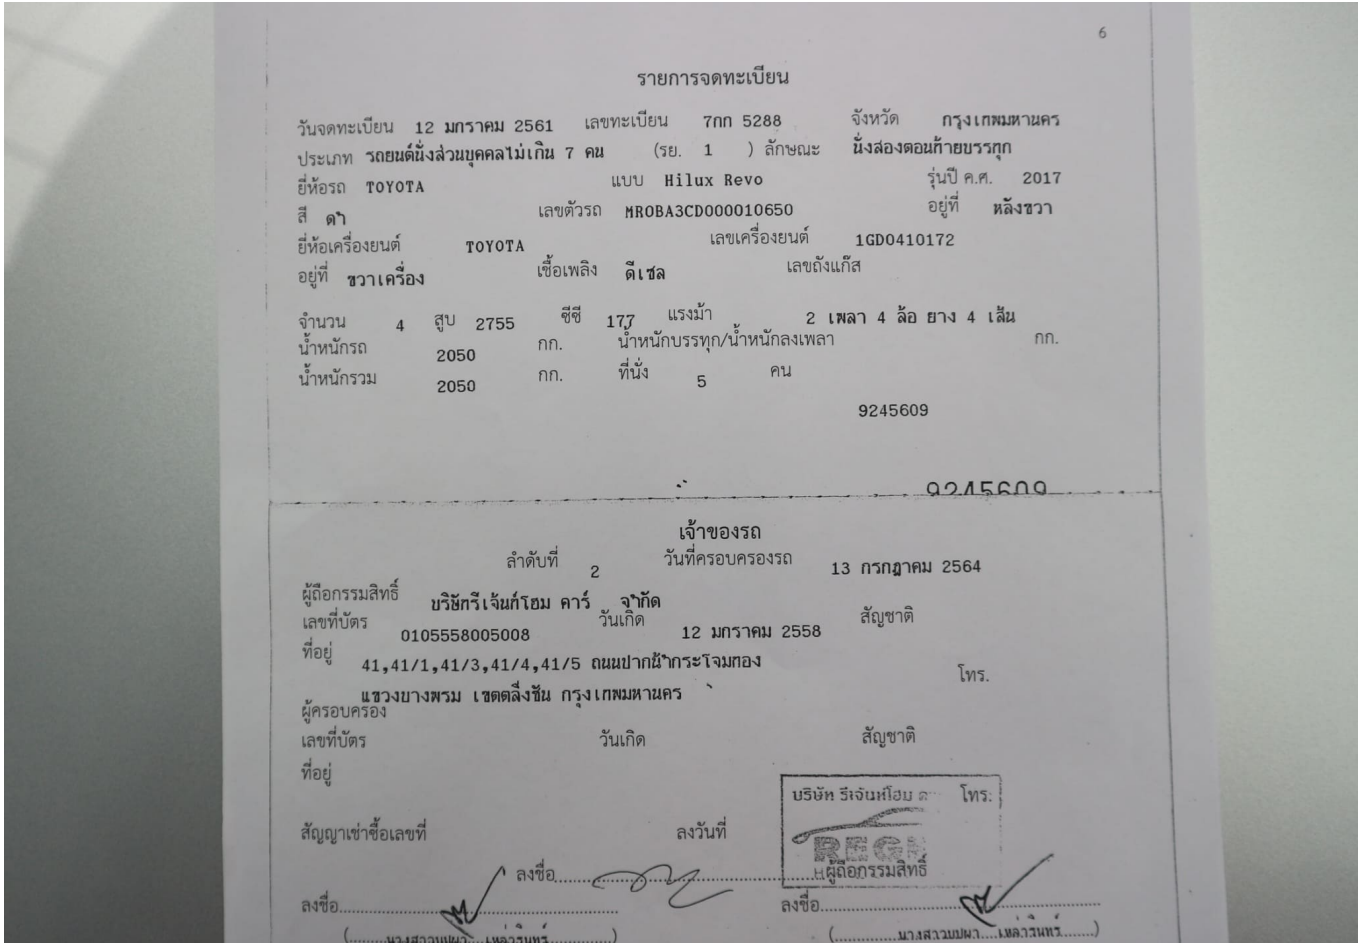 6
รายการจดทะเบียน
วันจดทะเบียน 12 มกราคม 2561 เลขทะเบียน 7กก 5288 จังหวัด กรุงเทพมหานคร
ประเภท รถยนต์นั่งส่วนบุคคลไม่เกิน 7 คน (รย. 1 ) ลักษณะ นั่งสองตอนท้ายบรรทุก
ยี่ห้อรถ TOYOTA แบบ Hilux Revo รุ่นปี ค.ศ. 2017
สี ดำ เลขตัวรถ MR0BA3CD000010650 อยู่ที่ หลังขวา
ยี่ห้อเครื่องยนต์ TOYOTA เลขเครื่องยนต์ 1GD0410172
อยู่ที่ ขวาเครื่อง เชื้อเพลิง ดีเซล เลขถังแก๊ส
จำนวน 4 สูบ 2755 ซีซี 177 แรงม้า 2 เพลา 4 ล้อ ยาง 4 เส้น
น้ำหนักรถ 2050 กก. น้ำหนักบรรทุก/น้ำหนักลงเพลา กก.
น้ำหนักรวม 2050 กก. ที่นั่ง 5 คน
9245609
9245609
เจ้าของรถ
ลำดับที่ 2 วันที่ครอบครองรถ 13 กรกฎาคม 2564
ผู้ถือกรรมสิทธิ์ บริษัทรีเจ้นท์โฮม คาร์ จำกัด
เลขที่บัตร 0105558005008 วันเกิด 12 มกราคม 2558 สัญชาติ
ที่อยู่ 41,41/1,41/3,41/4,41/5 ถนนปากน้ำกระโจมทอง
แขวงบางพรม เขตตลิ่งชัน กรุงเทพมหานคร โทร.
ผู้ครอบครอง
เลขที่บัตร วันเกิด สัญชาติ
ที่อยู่
บริษัท รีเจ้นท์โฮม โทร.
สัญญาเช่าซื้อเลขที่ ลงวันที่
REGE
ลงชื่อ ผู้ถือกรรมสิทธิ์
ลงชื่อ ลงชื่อ